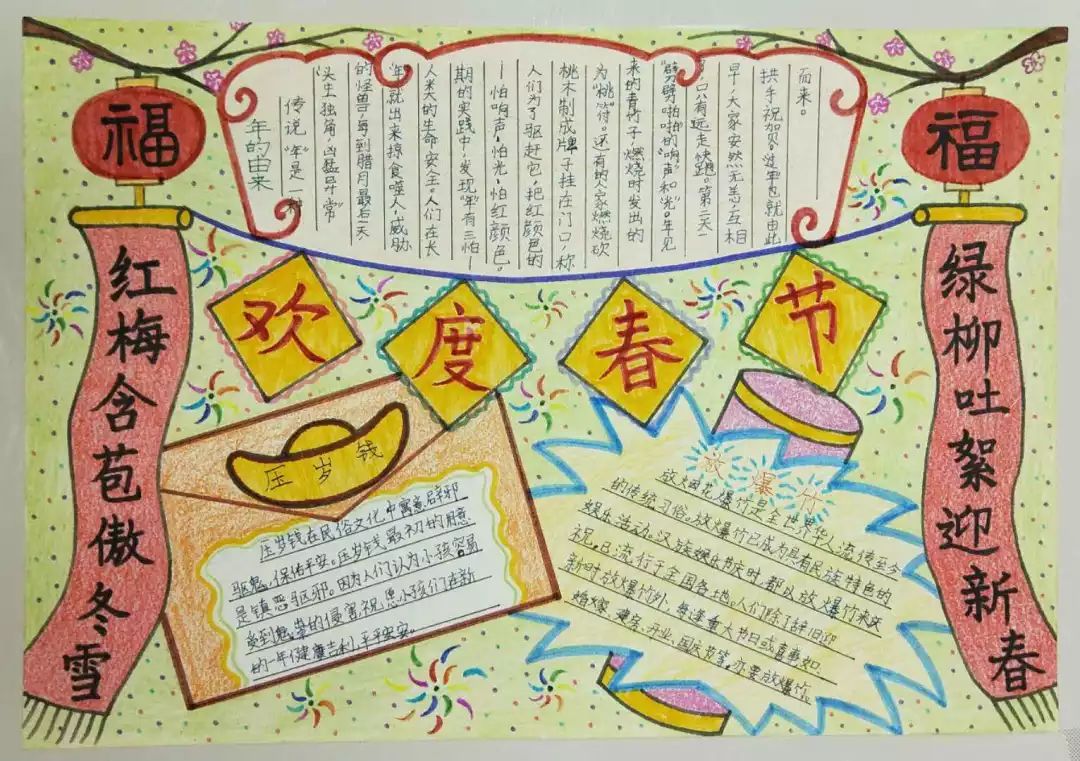 福
福
年的由来
传说“年”是一种
“头生独角,凶猛异常”
的怪兽,每到腊月最后一天,
“年”就出来掠食噬人,威胁
人类的生命安全。人们在长
期的实践中,发现“年”有三怕—
—怕响声,怕光,怕红颜色。
人们为了驱赶它,把红颜色的
桃木制成牌子挂在门口,称
为“桃”符。还有的人家燃烧砍
来的青竹子,燃烧时发出的
“劈劈啪啪”的响声和“光”。年见
了,只有远走快跑。第二天一
早,大家安然无恙,互相
拱手祝贺。过年也就由此
而来。
欢度春节
红梅含苞傲冬雪
绿柳吐絮迎新春
压岁钱
压岁钱在民俗文化中寓意辟邪
驱鬼,保佑平安。压岁钱最初的用意
是镇恶驱邪。因为人们认为小孩容易
受到鬼祟的侵害祝愿小孩们在新
的一年健康吉利,平平安安。
放爆竹
放烟花爆竹是全世界华人流传至今
的传统习俗。放爆竹已成为具有民族特色的
娱乐活动。汉族娱乐节庆时,都以放爆竹来庆
祝。已流行于全国各地。人们除了辞旧迎
新时放爆竹外,每逢重大节日或喜事如:
婚嫁、建房、开业、国庆节等,亦要放爆竹。